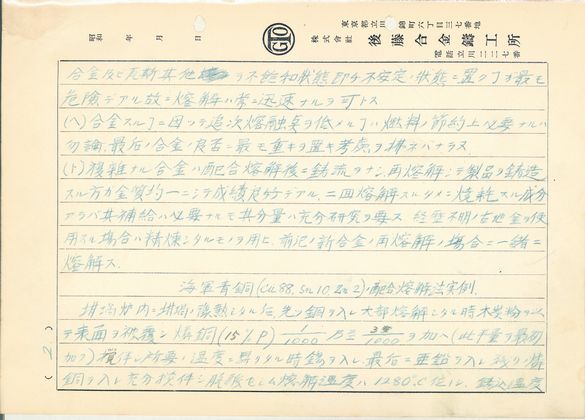 東京都立川市錦町六丁目三七番地
株式會社 後藤合金鑄工所
電話立川二二二七番
昭和 年 月 日
GTO
合金及ビ瓦斯其他 ヲ不飽和狀態即チ不安定ノ狀態ニ置クコトヲ最モ
危險デアル故ニ熔解ハ常ニ迅速ナルヲ可トス
(ヘ)合金スルコトニ因ッテ追次熔融点ヲ低メルコトハ燃料ノ節約上必要ナルハ
勿論、最后ノ合金ノ良否ニ最モ重キヲ置キ考慮ヲ拂ネバナラヌ
(ト)複雜ナル合金ハ配合熔解後ニ鋳流ヲナシ、再熔解シテ製品ヲ鋳造
スル方ガ金質均一ニシテ成績良好デアル、二回熔解スルタメニ燒耗スル成分
アラバ其補給ハ必要ナルモ其分量ハ充分研究ヲ要ス 経歴不明ノ古地金ヲ使
用スル場合ハ精煉シタルモノヲ用ヒ、前記ノ新合金ノ再熔解ノ場合ニ一緒ニ
熔解ス.
海軍青銅(Cu.88. Sn.10. Zn 2)ノ配合熔解法実例.
坩堝炉内ニ坩堝ノ強熱シタル后先ツ銅ヲ入レ大部熔解シタル時木炭粉ヲ以
テ表面ヲ被覆シ燐銅(15%P) 1/1000 乃至 3/1000 ヲ加ヘ(此半量ヲ最初
加フ)撹伴シ所要ノ温度ニ昇リタル時錫ヲ入レ、最后ニ亜鉛ヲ入レ残リノ燐
銅ヲ入レ充分撹伴シ脱酸セシム熔解温度ハ1280°C位ナル、鋳込温度
( 2 )